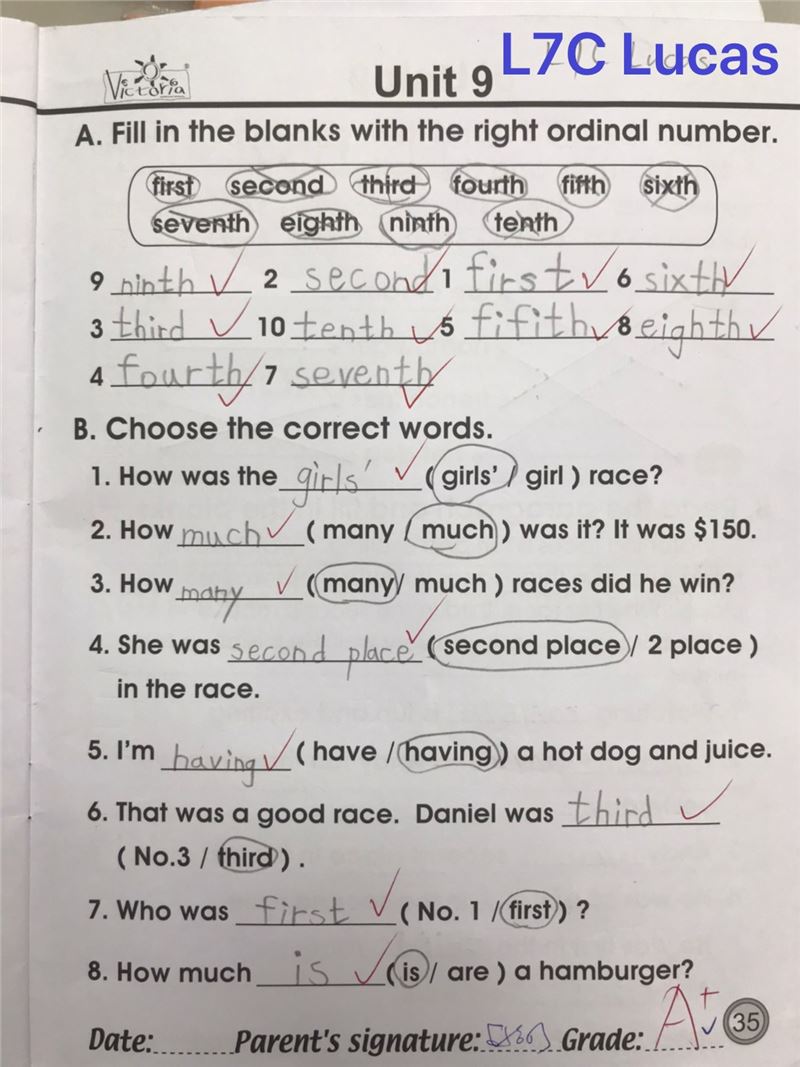 L7C Lucas
Victoria
Unit 9 L7C Lucas
A. Fill in the blanks with the right ordinal number.
first second third fourth fifth sixth
seventh eighth ninth tenth
9 ninth 2 second 1 first 6 sixth
3 third 10 tenth 5 fifith 8 eighth
4 fourth 7 seventh
B. Choose the correct words.
1. How was the girls' ( girls' / girl ) race?
2. How much ( many / much ) was it? It was $150.
3. How many ( many / much ) races did he win?
4. She was second place ( second place / 2 place )
in the race.
5. I'm having ( have / having ) a hot dog and juice.
6. That was a good race. Daniel was third
( No.3 / third ) .
7. Who was first ( No. 1 / first ) ?
8. How much is ( is / are ) a hamburger?
Date: Parent's signature: Grade: A+
35